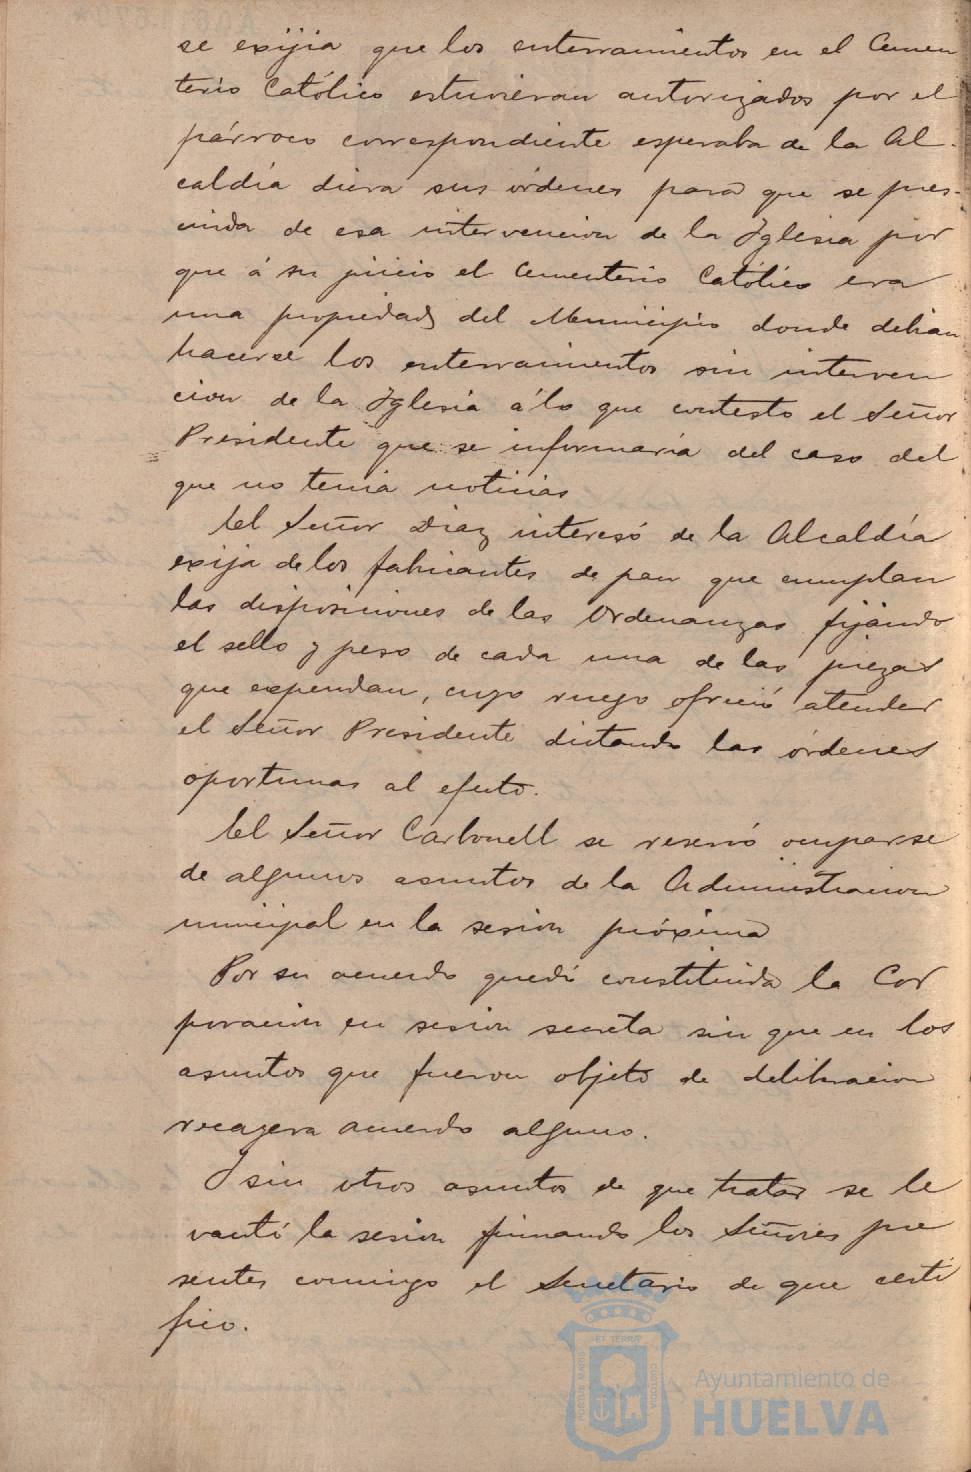 se exijia que los enterramientos en el Cemen
terio Católico estuvieran autorizados por el
párroco correspondiente esperaba de la Al-
caldía diera sus órdenes para que se pres-
cinda de esa intervencion de la Iglesia por
que á su juicio el Cementerio Católico era
una propiedad del Municipio donde debian
hacerse los enterramientos sin interven
cion de la Iglesia á lo que contesto el Señor
Presidente que se informaría del caso del
que no tenia noticias
El Señor Diaz interesó de la Alcaldía
exija de los fabricantes de pan que cumplan
las disposiciones de las Ordenanzas fijando
el sello y peso de cada una de las piezas
que expendan, cuyo ruego ofreció atender
el Señor Presidente dictando las órdenes
oportunas al efecto.
El Señor Carbonell se reservó ocuparse
de algunos asuntos de la Administracion
municipal en la sesion próxima
Por su acuerdo quedó constituida la Cor
poracion en sesion secreta sin que en los
asuntos que fueron objeto de deliberacion
recayera acuerdo alguno.
Y sin otros asuntos de que tratar se le
vantó la sesion firmando los Señores pre
sentes conmigo el Secretario de que certi
fico.
ET TERRÆ
PORTUS MARIS
CUSTODIA
Ayuntamiento de
HUELVA